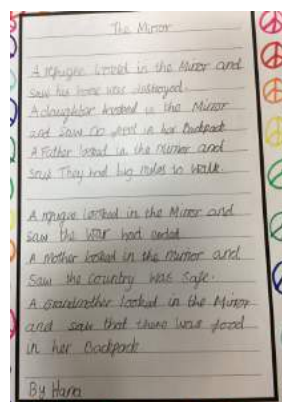 The Mirror
A refugee looked in the Mirror and
saw his home was destroyed.
A daughter looked in the Mirror
and saw no food in her Backpack
A Father looked in the mirror and
saw They had big miles to walk.
A refugee looked in the Mirror and
saw the war had ended
A Mother looked in the mirror and
Saw the country was safe.
A Grandmother looked in the Mirror
and saw that there was food
in her Backpack
By Hana